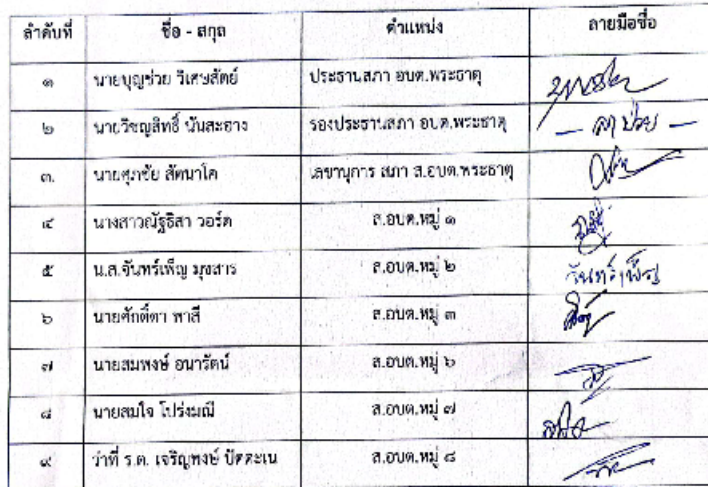 ลำดับที่ ชื่อ - สกุล ตำแหน่ง ลายมือชื่อ
๑ นายบุญช่วย วิเศษสัตย์ ประธานสภา อบต.พระธาตุ
๒ นายวิชญสิทธิ์ นันสะอาง รองประธานสภา อบต.พระธาตุ – ลาป่วย –
๓. นายศุภชัย สัตนาโค เลขานุการ สภา ส.อบต.พระธาตุ
๔ นางสาวณัฐธิสา วอร์ด ส.อบต.หมู่ ๑
๕ น.ส.จันทร์เพ็ญ มุขสาร ส.อบต.หมู่ ๒ จันทร์เพ็ญ
๖ นายศักดิ์ดา พาสี ส.อบต.หมู่ ๓
๗ นายสมพงษ์ อนารัตน์ ส.อบต.หมู่ ๖
๘ นายสมใจ โปร่งมณี ส.อบต.หมู่ ๗
๙ ว่าที่ ร.ต. เจริญพงษ์ ปัตตะเน ส.อบต.หมู่ ๘